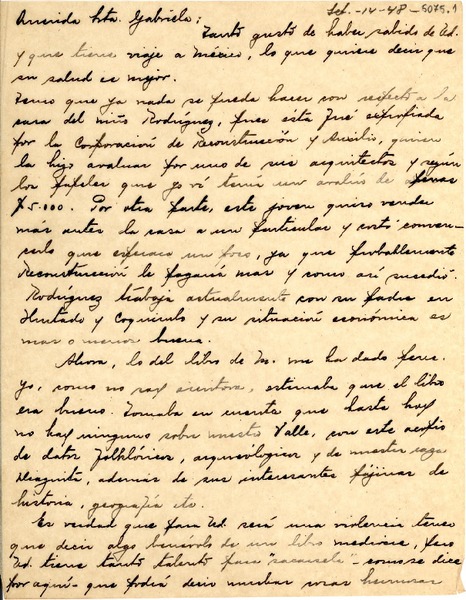 Set. -14-48-5075.1
Querida Srta. Gabriela:
Tanto gusto de haber sabido de Ud.
y que tiene viaje a México, lo que quiere decir que
su salud es mejor.
Temo que ya nada se pueda hacer con respecto a la
casa del niño Rodríguez, pues esta fué expropiada
por la Corporación de Reconstrucción y Auxilio, quien
la hizo avaluar por uno de sus arquitectos y según
los papeles que yo vi tenía un avalúo de apenas
$5.000. Por otra parte, este joven quiso vender
mas antes la casa a un particular y costó conven-
cerlo que esperara un poco, ya que probablemente
Reconstrucción le pagaría mas y como así sucedió.
Rodríguez trabaja actualmente con su padre en
Hurtado y Coquimbo y su situación económica es
mas o menos buena.
Ahora, lo del libro de M. me ha dado pena.
Yo, como no soy escritora, estimaba que el libro
era bueno. Tomaba en cuenta que hasta hoy
no hay ninguno sobre nuestro Valle, con este acopio
de datos folklóricos, arqueológicos y de nuestra raza
Diaguita, además de sus interesantes páginas de
historia, geografía etc.
Es verdad que para Ud. será una violencia tener
que decir algo benévolo de un libro mediocre, pero
Ud. tiene tanto talento para "sacársela" - como se dice
por aquí - que podrá decir muchas cosas hermosas